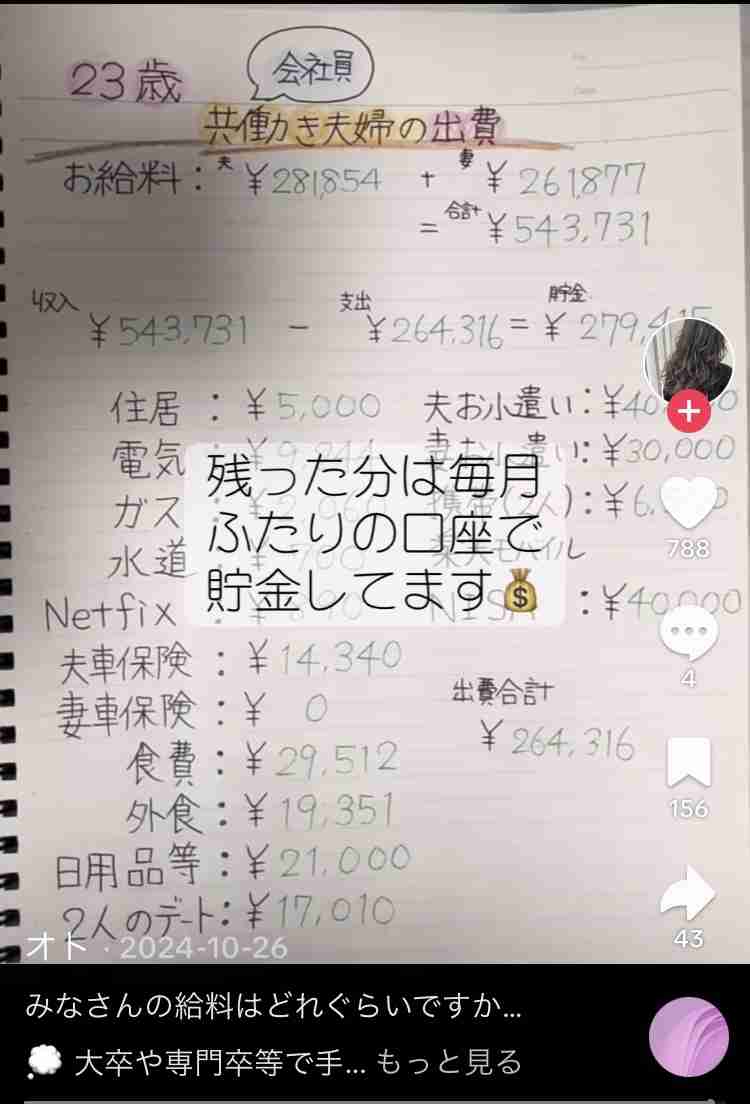 23歳
会社員
共働き夫婦の出費
お給料： 夫 ¥281,854 + 妻 ¥ 261,877
= 合計 ¥543,731
収入 支出 貯金
¥543,731 - ¥264,316 = ¥ 279,415
住居 : ¥5,000 夫お小遣い:¥40,000
電気 妻お小遣い:¥30,000
ガス 携帯(2人):¥6,
水道 楽天モバイル
残った分は毎月
ふたりの口座で
貯金してます💰
Netfix NISA :¥40,000
夫車保険 : ¥14,340
妻車保険 : ¥ 0
出費合計
¥264,316
食費 : ¥29,512
外食 : ¥19,351
日用品等 : ¥21,000
2人のデート: ¥17,010
788
4
156
43
オト · 2024-10-26
みなさんの給料はどれぐらいですか...
💭 大卒や専門卒等で手... もっと見る